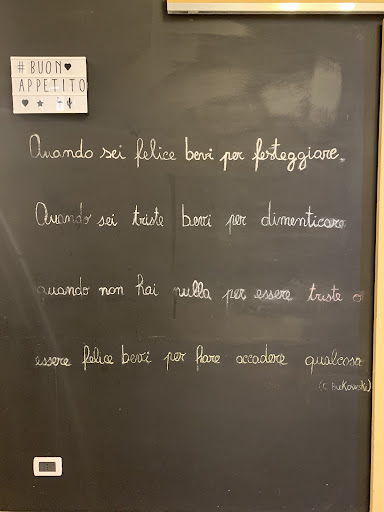 # BUON
APPETITO
Quando sei felice bevi per festeggiare.
Quando sei triste bevi per dimenticare
quando non hai nulla per essere triste o
essere felice bevi per fare accadere qualcosa
(C. Bukowski)